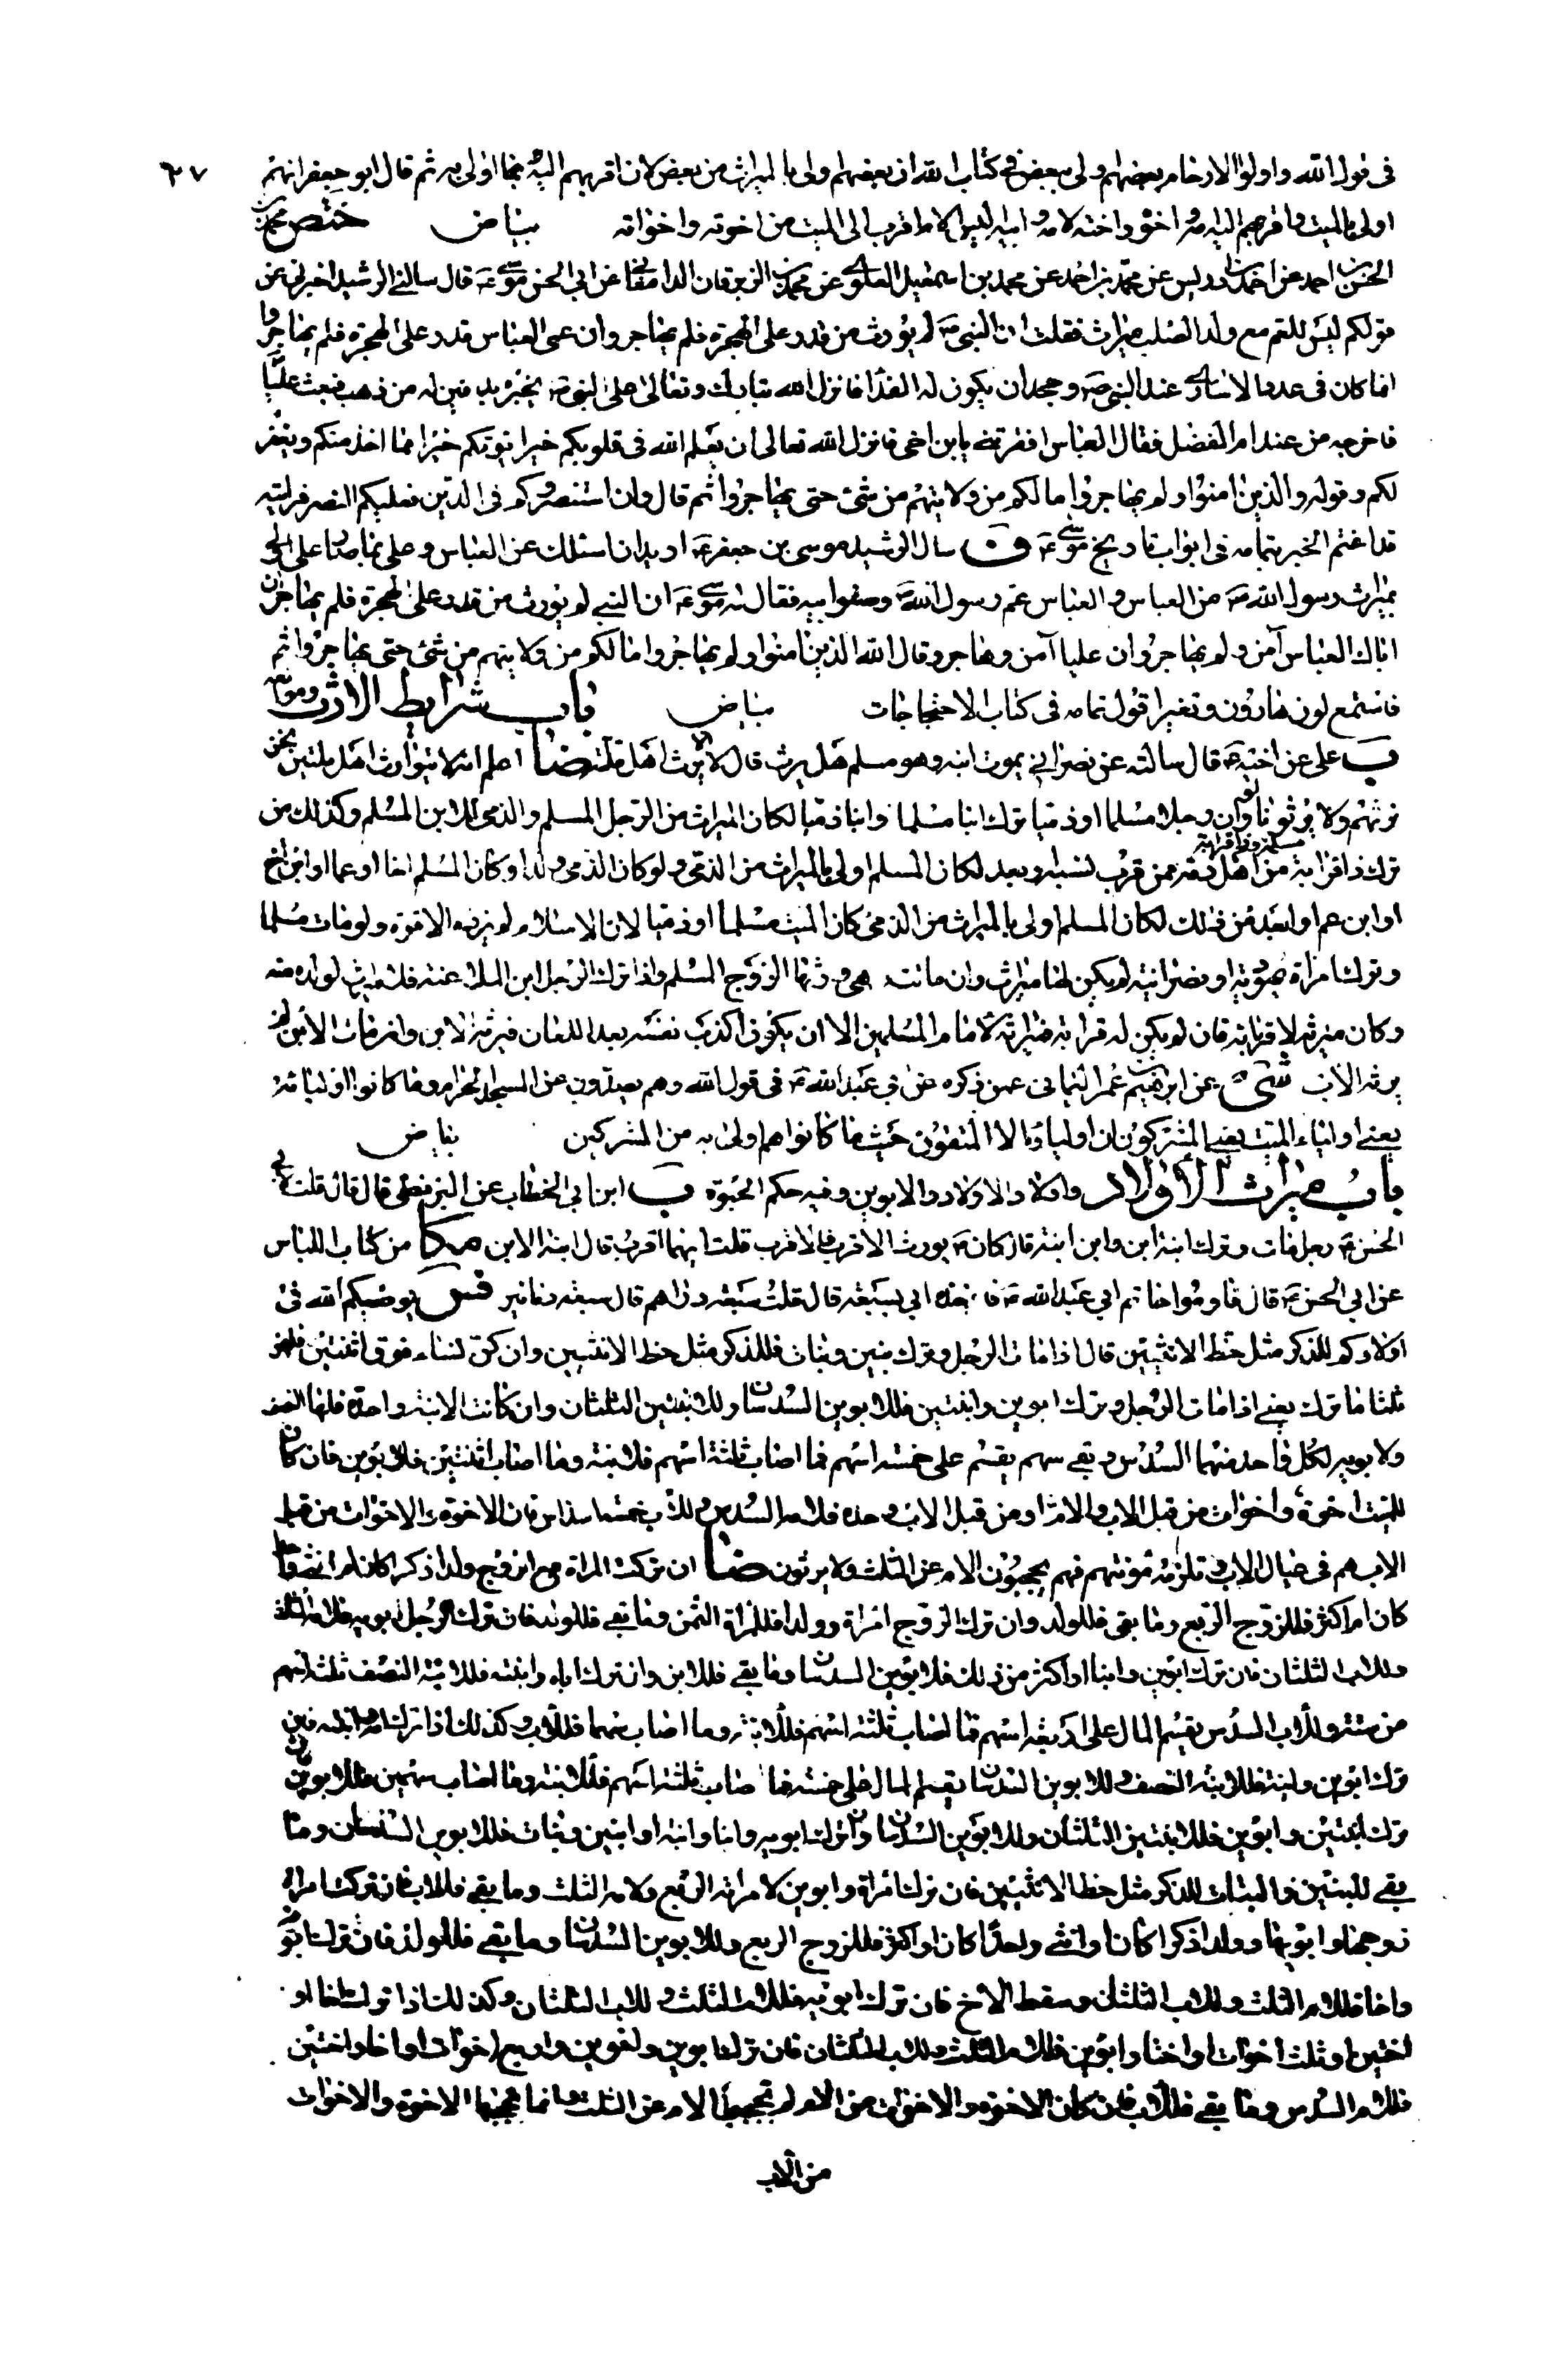 ٢٧
فى قول الله واولوا الارحام بعضهم اولى ببعض فى كتاب الله ان بعضهم اولى بالميراث من بعض لان اقربهم اليه رحما اولى به ثم قال ابو جعفر انهم
اولى بالميت واقربهم اليه امه واخوه واخته لامه وابيه اليس الام اقرب الى الميت من اخوته واخواته بياض ختص محمد بن
الحسن بن احمد عن احمد بن ادريس عن محمد بن احمد عن محمد بن اسمعيل العلوى عن محمد بن الزبرقان الدامغانى عن ابى الحسن موسى ع قال سالنى الرشيد اخبرنى عن
قولكم ليس للعم مع ولد الصلب ميراث فقلت ان النبى ص لم يورث من قدر على الهجرة فلم يهاجر وان عمى العباس قدر على الهجرة فلم يهاجر وا
انما كان فى عدد الاسارى عند النبى ص وجحد ان يكون له الفدا فانزل الله تبارك وتعالى على النبى ص يخبره بدفين له من ذهب فبعث عليا
فاخرجه من عند ام الفضل فقال العباس افقرتنى يابن اخى فانزل الله تعالى ان يعلم الله فى قلوبكم خيرا يؤتكم خيرا مما اخذ منكم ويغفر
لكم وقوله والذين امنوا ولم يهاجروا ما لكم من ولايتهم من شئ حتى يهاجروا ثم قال وان استنصروكم فى الدين فعليكم النصر فرايته
قد اغتم الخبر بتمامه فى ابواب تاريخ موسى ع ف سال الرشيد موسى بن جعفر ع اريد ان اسئلك عن العباس وعلى بما صار على اولى
بميراث رسول الله ص من العباس والعباس عم رسول الله ص وصنو ابيه فقال له موسى ع ان النبى لم يورث من قدر على الهجرة فلم يهاجر ان
اباك العباس آمن ولم يهاجر وان عليا آمن وهاجر وقال الله الذين امنوا ولم يهاجروا ما لكم من ولايتهم من شئ حتى يهاجروا ثم
فاستمع لون هارون وتغير اقول تمامه فى كتاب الاحتجاجات بياض باب شرايط الارث وموانعه
ب على عن اخيه ع قال سالته عن نصرانى يموت ابنه وهو مسلم هل يرث قال لا يرث اهل ملة ضا اعلم انه لا يتوارث اهل ملتين نحن
نرثهم ولا يرثونا ولو ان رجلا مسلما او ذميا ترك ابنا مسلما وابنا ذميا لكان الميراث من الرجل المسلم والذمى للابن المسلم وكذلك من
ترك ذا قرابة مسلمة وذا قرابة من اهل ذمة ممن قرب نسبه او بعد لكان المسلم اولى بالميراث من الذمى ولو كان الذمى ولدا وكان المسلم اخا او عما او ابن اخ
او ابن عم او ابعد من ذلك لكان المسلم اولى بالميراث من الذمى كان الميت مسلما او ذميا لان الاسلام لم يزده الا قوة ولو مات مسلما
وترك امراة يهودية او نصرانية لم يكن لها ميراث وان ماتت هى ورثها الزوج المسلم واذا ترك الرجل ابن الملاعنة فلا ميراث لولده منه
وكان ميرثه لاقربائه فان لم يكن له قرابة فميراثه لامام المسلمين الا ان يكون اكذب نفسه بعد اللعان فيرثه الابن وان مات الابن لم
يرثه الاب شى عن ابرهيم بن عمر اليمانى عمن ذكره عن ابى عبد الله ع فى قول الله وهم يصدون عن المسجد الحرام وما كانوا اوليائه
يعنى اولياء البيت يعنى المشركون ان اولياؤه الا المتقون حيث ما كانوا هم اولى به من المشركين بياض
باب ميراث الاولاد واولاد الاولاد والابوين وفيه حكم الحبوة ب ابن ابى الخطاب عن البزنطى قال قال قلت لابى
الحسن ع رجل مات وترك ابنة ابن وابن ابنة قال كان ع يورث الاقرب فالاقرب قلت ايهما اقرب قال ابنة الابن مكا من كتاب اللباس
عن ابى الحسن ع قال قاوموا خاتم ابى عبد الله ع فاخذه ابى بسبعة قال قلت سبعة دراهم قال سبعة دنانير فس يوصيكم الله فى
اولادكم للذكر مثل حظ الانثيين قال اذا مات الرجل وترك بنين وبنات فللذكر مثل حظ الانثيين وان كن نساء فوق اثنتين فلهن
ثلثا ما ترك يعنى اذا مات الرجل وترك ابوين وابنتين فللابوين السدسان وللابنتين الثلثان وان كانت الابنة واحدة فلها النصف
ولابويه لكل واحد منهما السدس وبقى سهم يقسم على خمسة اسهم فما اصاب ثلثة اسهم فللابنة وما اصاب اثنتين فللابوين فان كان
للميت اخوة واخوات من قبل الاب والام او من قبل الاب وحده فللام السدس وللاب خمسة اسداس فان الاخوة والاخوات من قبل
الاب هم فى عيال الاب وتلزمه مؤنتهم فهم يحجبون الام عن الثلث ولا يرثون ضا ان تركت المراة مع الزوج ولدا ذكرا كان ام انثى واحدا
كان ام اكثر فللزوج الربع وما بقى فللولد وان ترك الزوج امراة وولدا فللمراة الثمن وما بقى فللولد فان ترك الرجل ابويه فلامه الثلث
وللاب الثلثان فان ترك ابوين وابنا او اكثر من ذلك فلابوين السدسان وما بقى فللابن وان ترك اباه وابنته فللابنة النصف ثلثة اسهم
من ستة وللاب السدس يقسم المال على اربعة اسهم فما اصاب ثلثة اسهم فللابنة وما اصاب سهما فللاب وكذلك اذا ترك امه وابنته فان
ترك ابوين وابنة فللابنة النصف وللابوين السدسان يقسم المال على خمسة فما اصاب ثلثة اسهم فللابنة وما اصاب سهمين فللابوين فان
ترك ابنتين وابوين فللابنتين الثلثان وللابوين السدسان وان ترك ابويه وابنا وابنة او ابنين وبنات فللابوين السدسان وما
بقى للبنين والبنات للذكر مثل حظ الانثيين فان ترك امراة وابوين لامراته الربع ولامه الثلث وما بقى فللاب فان تركت امراة
زوجها وابويها وولدا ذكرا كان او انثى واحدا كان او اكثر فللزوج الربع وللابوين السدسان وما بقى فللولد فان ترك ابوين
واخا فللام الثلث وللاب الثلثان وسقط الاخ فان ترك ابويه فللام الثلث وللاب الثلثان وكذلك اذا ترك اخا او
اختين او ثلث اخوات او اختا وابوين فللام الثلث وللاب الثلثان فان ترك ابوين واخوين او اربع اخوات او اخا واختين
فللام السدس وما بقى فللاب فان كان الاخوة والاخوات من الام لم تحجبها الام عن الثلث وانما تحجبها الاخوة والاخوات
من الاب